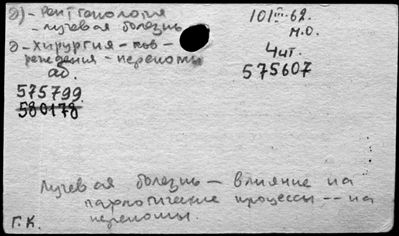 д)- Рентгенология
- лучевая болезнь
д - хирургия - пов-
реждения - переломы
аб.
101 III-62.
м.о.
4 чит.
575607
575799
580178
Лучевая болезнь - влияние на
патологические процессы -- на
переломы.
Г.К.